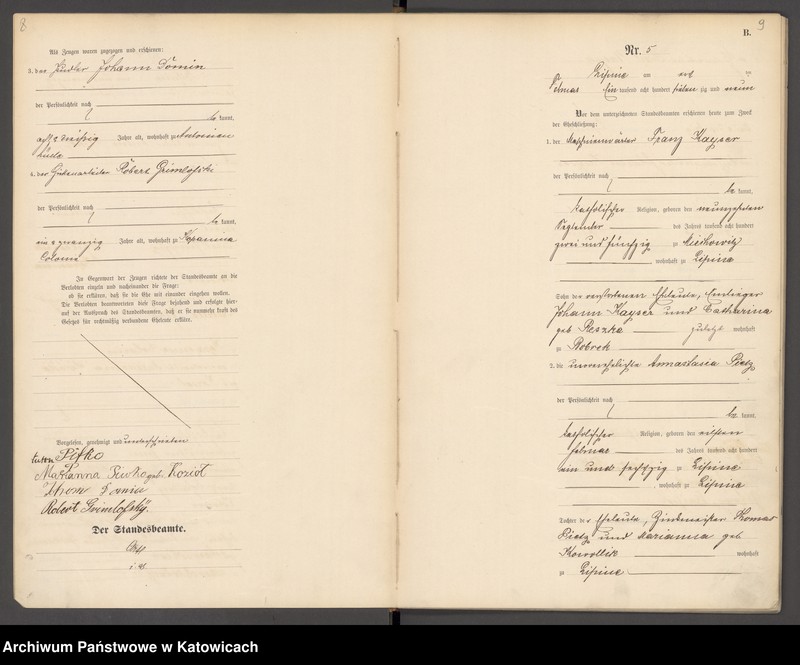 8
Als Zeugen waren zugezogen und erschienen:
3. der Johann Domin
der Persönlichkeit nach
be kannt,
acht u dreißig Jahre alt, wohnhaft zu Antonien
hütte
4. der Hüttenarbeiter Robert Grimlofski
der Persönlichkeit nach
be kannt,
ein u zwanzig Jahre alt, wohnhaft zu Kopanina
Colonie
In Gegenwart der Zeugen richtete der Standesbeamte an die
Verlobten einzeln und nacheinander die Frage:
ob sie erklären, daß sie die Ehe mit einander eingehen wollen.
Die Verlobten beantworteten diese Frage bejahend und erfolgte hier-
auf der Ausspruch des Standesbeamten, daß er sie nunmehr kraft des
Gesetzes für rechtmäßig verbundene Eheleute erkläre.
Vorgelesen, genehmigt und unterschrieben
Pifko
Marianna geb. Koziol
Domin
Robert Grimlofsky.
Der Standesbeamte.
9
B.
Nr. 5
Lipine am acht
Februar Ein tausend acht hundert siebenzig und neun
Vor dem unterzeichneten Standesbeamten erschienen heute zum Zweck
der Eheschließung:
1. der Maschinenwärter Franz Kayser
der Persönlichkeit nach
be kannt,
katholischer Religion, geboren den neunzehnten
September des Jahres tausend acht hundert
zwei und fünfzig zu Miechowitz
wohnhaft zu Lipine
Sohn der verstorbenen Eheleute, Einlieger
Johann Kayser und Catharina
geb Reszka zuletzt wohnhaft
zu Bobrek
2. die unverehelichte Annastasia Pietz
der Persönlichkeit nach
be kannt,
katholischer Religion, geboren den elften
Februar des Jahres tausend acht hundert
ein und sechszig zu Lipine
wohnhaft zu Lipine
Tochter der Eheleute, Zinkmeister Thomas
Pietz und Marianna geb
Kowollik wohnhaft
zu Lipine
Archiwum Państwowe w Katowicach